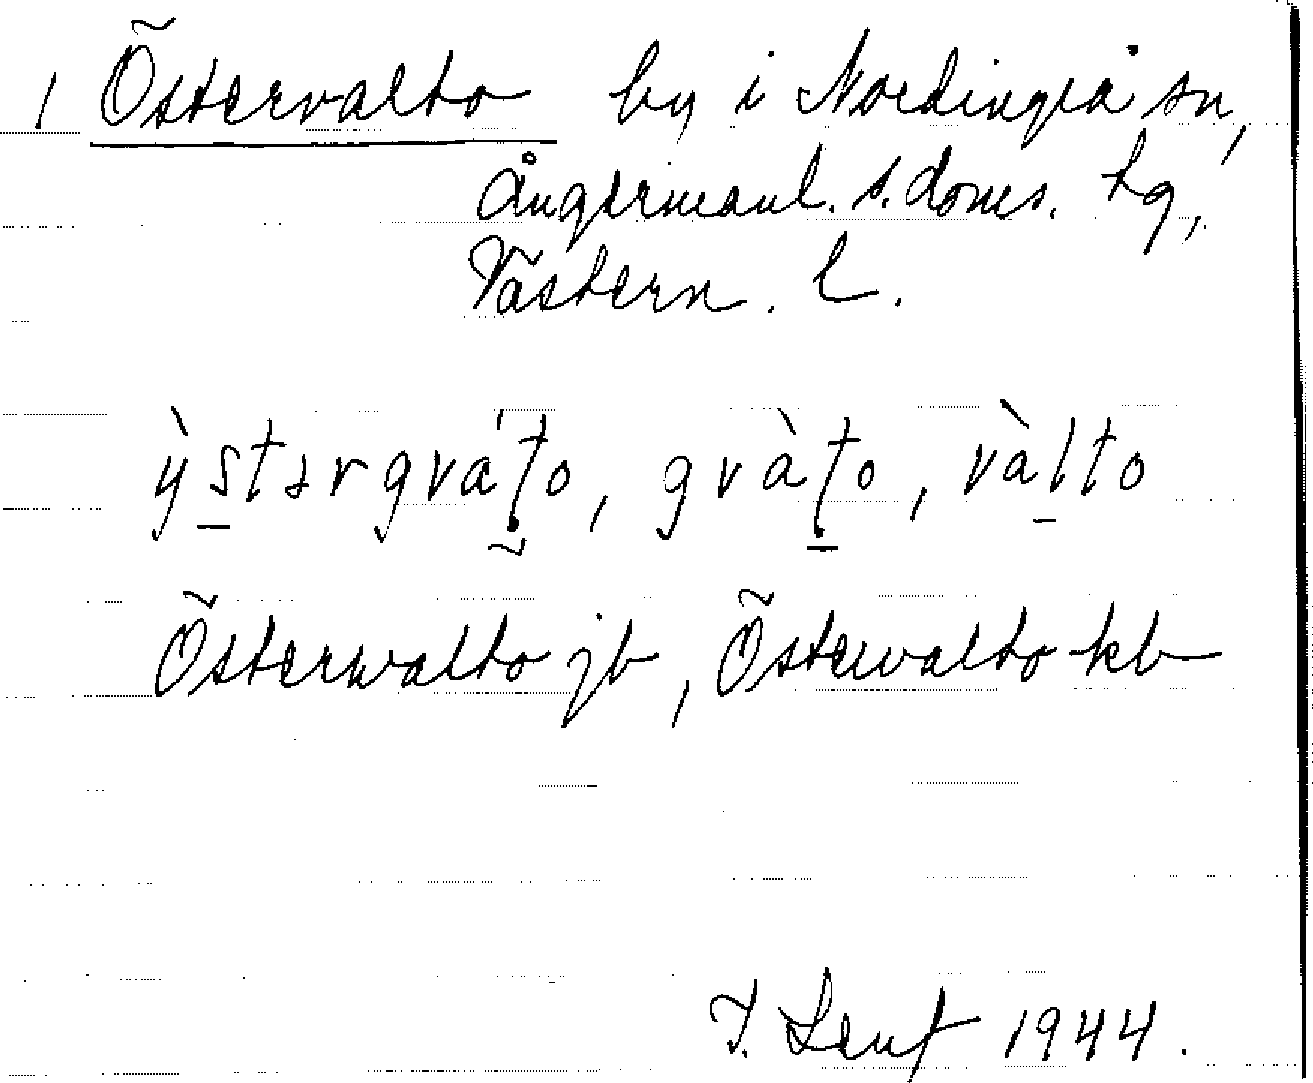 1 Östervalto by i Nordingrå sn,
Ångermanl. s. doms. tg,
Västern. l.
ỳstərgvato, gvàto, vàlto
Österwalto jb, Östervalto kb
1944.